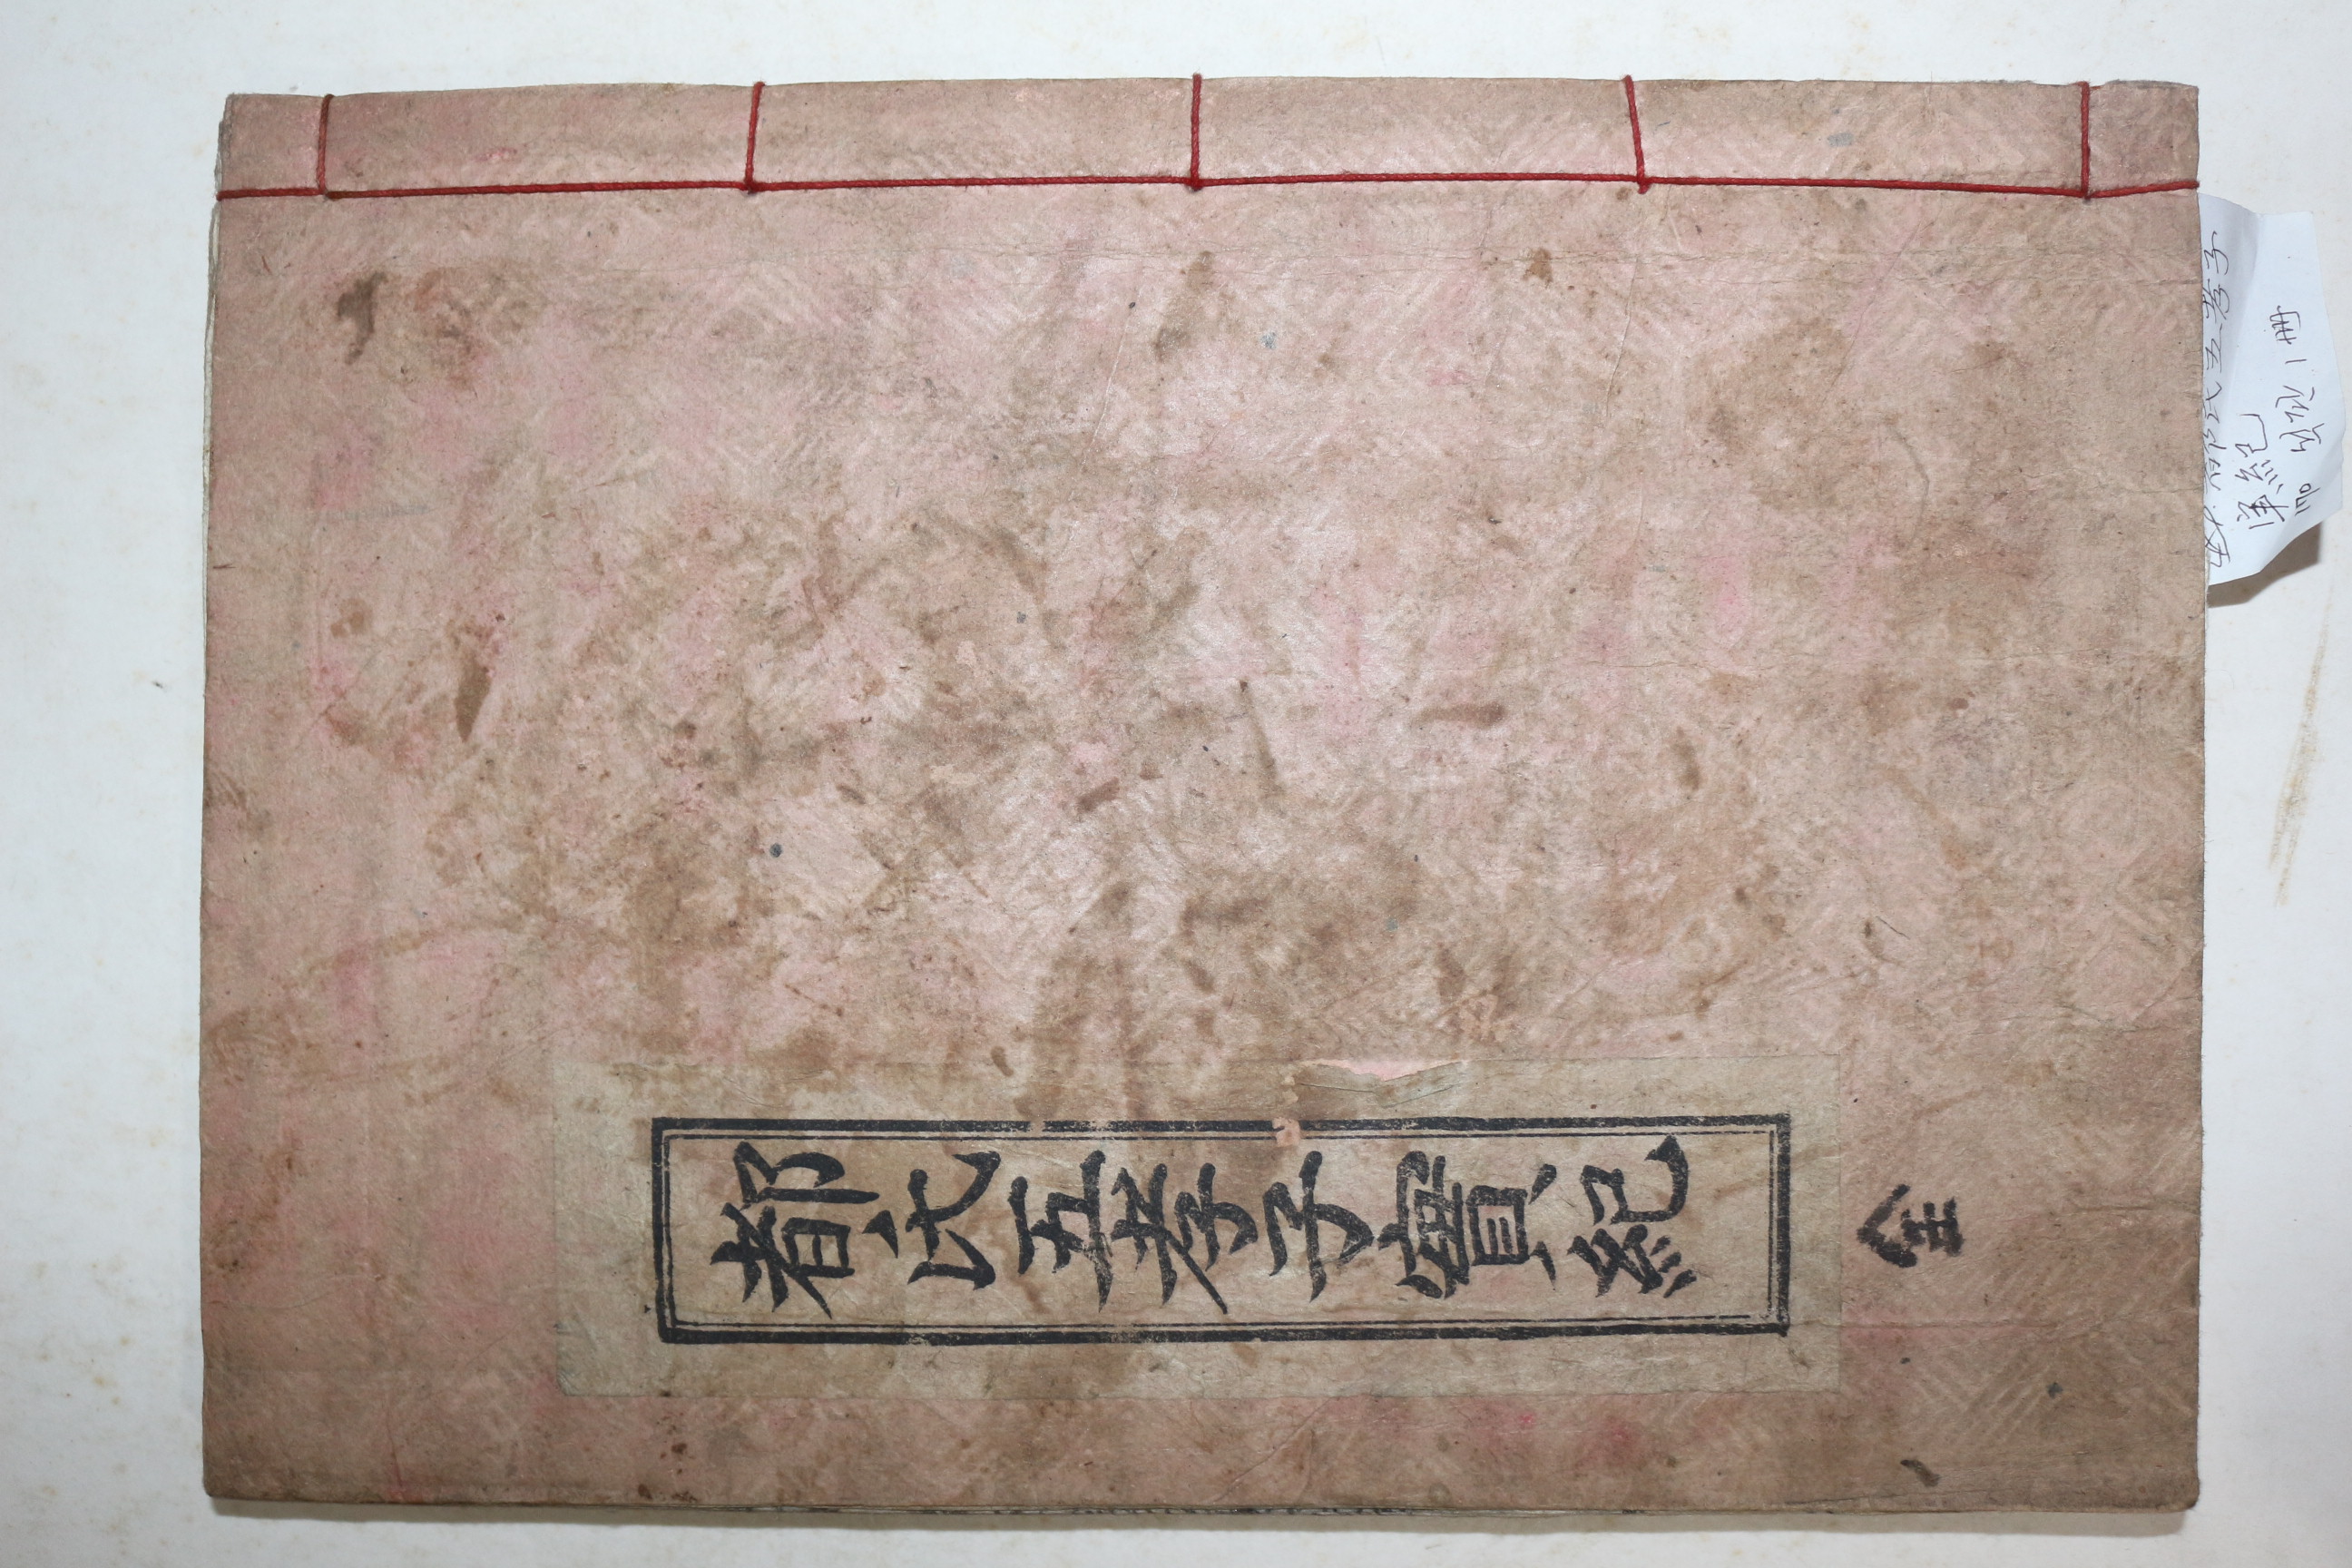 都氏五孝子實紀
全
都氏五孝子
実紀
170 석판 1冊